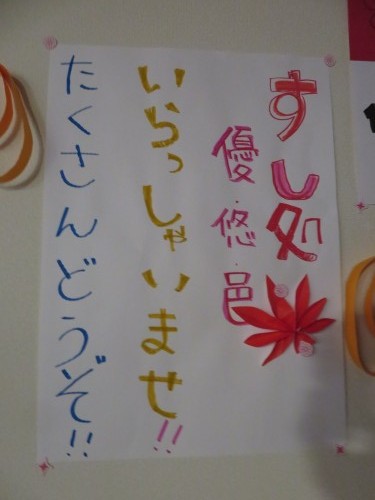 すし処
優・悠・邑
いらっしゃいませ!!
たくさんどうぞ!!